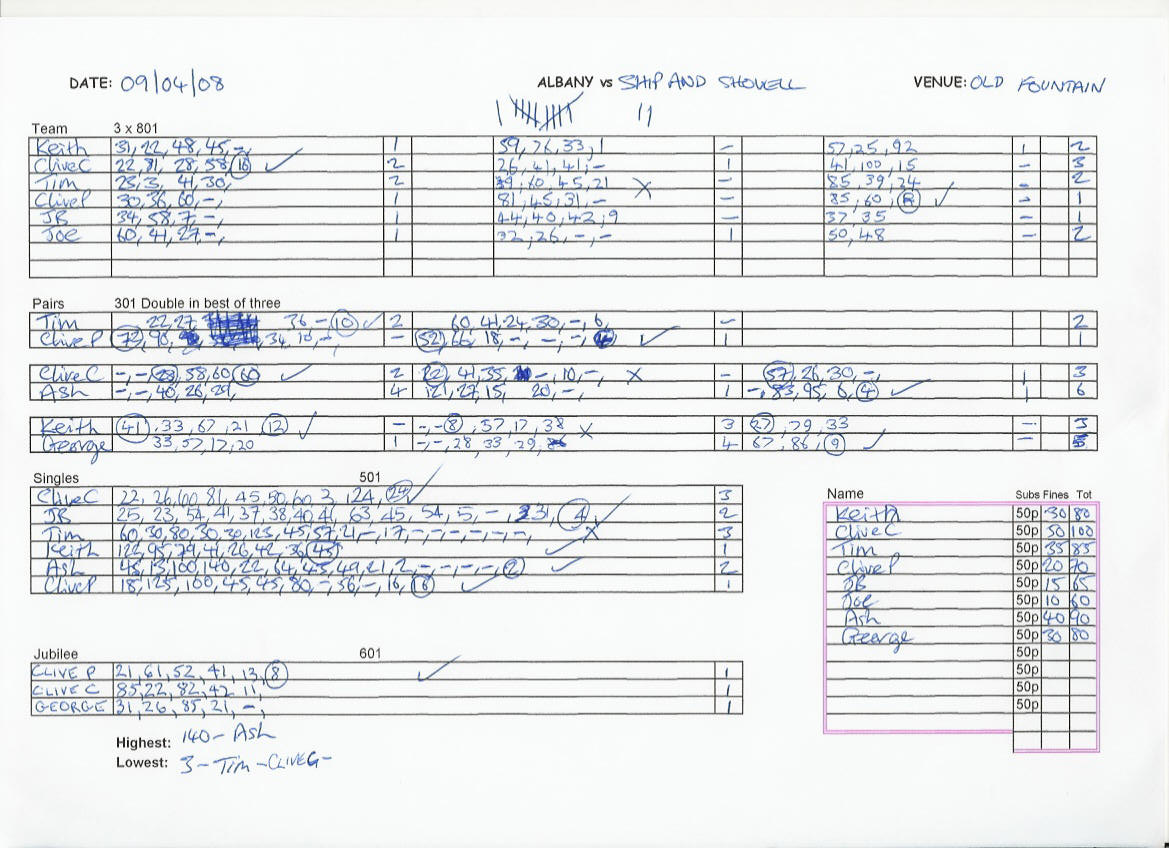 DATE: 09/04/08 ALBANY vs SHIP AND SHOVELL VENUE: OLD FOUNTAIN
Team 3 x 801
Keith 31, 22, 48, 45, -, 1 59, 76, 33, 1 - 57, 25, 92 1 2
CliveC 22, 81, 28, 58, 16 ✓ 2 26, 41, 41, - 1 41, 100, 15 - 3
Tim 23, 3, 41, 30, 2 60, 45, 21 X - 85, 39, 24 - 2
CliveP 30, 36, 60, -, 1 81, 45, 31, - - 85, 60, ✓ - 1
JB 34, 58, 7, -, 1 44, 40, 42, 9 - 37, 35 - 1
Joe 60, 41, 27, -, 1 32, 26, -, - 1 50, 48 - 2
Pairs 301 Double in best of three
Tim 22, 27 36 - 10 ✓ 2 60, 41, 24, 30, -, 6, - 2
CliveP 72, 90, 34, 10, -, - 52, 66, 18, -, -, -, ✓ 1 1
CliveC -, -, 28, 58, 60, 60 ✓ 2 22, 41, 35, -, 10, -, X - 57, 26, 30, -, 1 3
Ash -, -, 40, 26, 29, 4 121, 27, 15, 20, -, 1 -, 83, 95, 6, 4 ✓ 1 6
Keith 41, 33, 67, 21, 12 ✓ - -, - 8, 57, 17, 38 X 3 27, 79, 33 - 3
George 33, 57, 17, 20 1 -, -, 28, 33, 29, 4 67, 86, 9 ✓ - 5
Singles 501
CliveC 22, 26, 60, 81, 45, 50, 60, 3, 124, 24 ✓ 3
JB 25, 23, 54, 41, 37, 38, 40, 41, 63, 45, 54, 5, -, 31, 4 ✓ 2
Tim 60, 30, 80, 30, 30, 123, 45, 57, 21, -, 17, -, -, -, -, -, -, X 3
Keith 122, 95, 79, 41, 26, 42, 36, ✓ 1
Ash 48, 13, 100, 140, 22, 64, 45, 49, 21, 2, -, -, -, -, 2 ✓ 2
CliveP 18, 125, 100, 45, 45, 80, -, 56, -, 16, 16 ✓ 1
Name Subs Fines Tot
Keith 50p 30 80
CliveC 50p 50 100
Tim 50p 35 85
CliveP 50p 20 70
JB 50p 15 65
Joe 50p 10 60
Ash 50p 40 90
George 50p 30 80
50p
50p
50p
50p
Jubilee 601
CLIVE P 21, 61, 52, 41, 13, 8 ✓ 1
CLIVE C 85, 22, 82, 42, 11, 1
GEORGE 31, 26, 85, 21, -, 1
Highest: 140 - Ash
Lowest: 3 - Tim - CLIVEC -